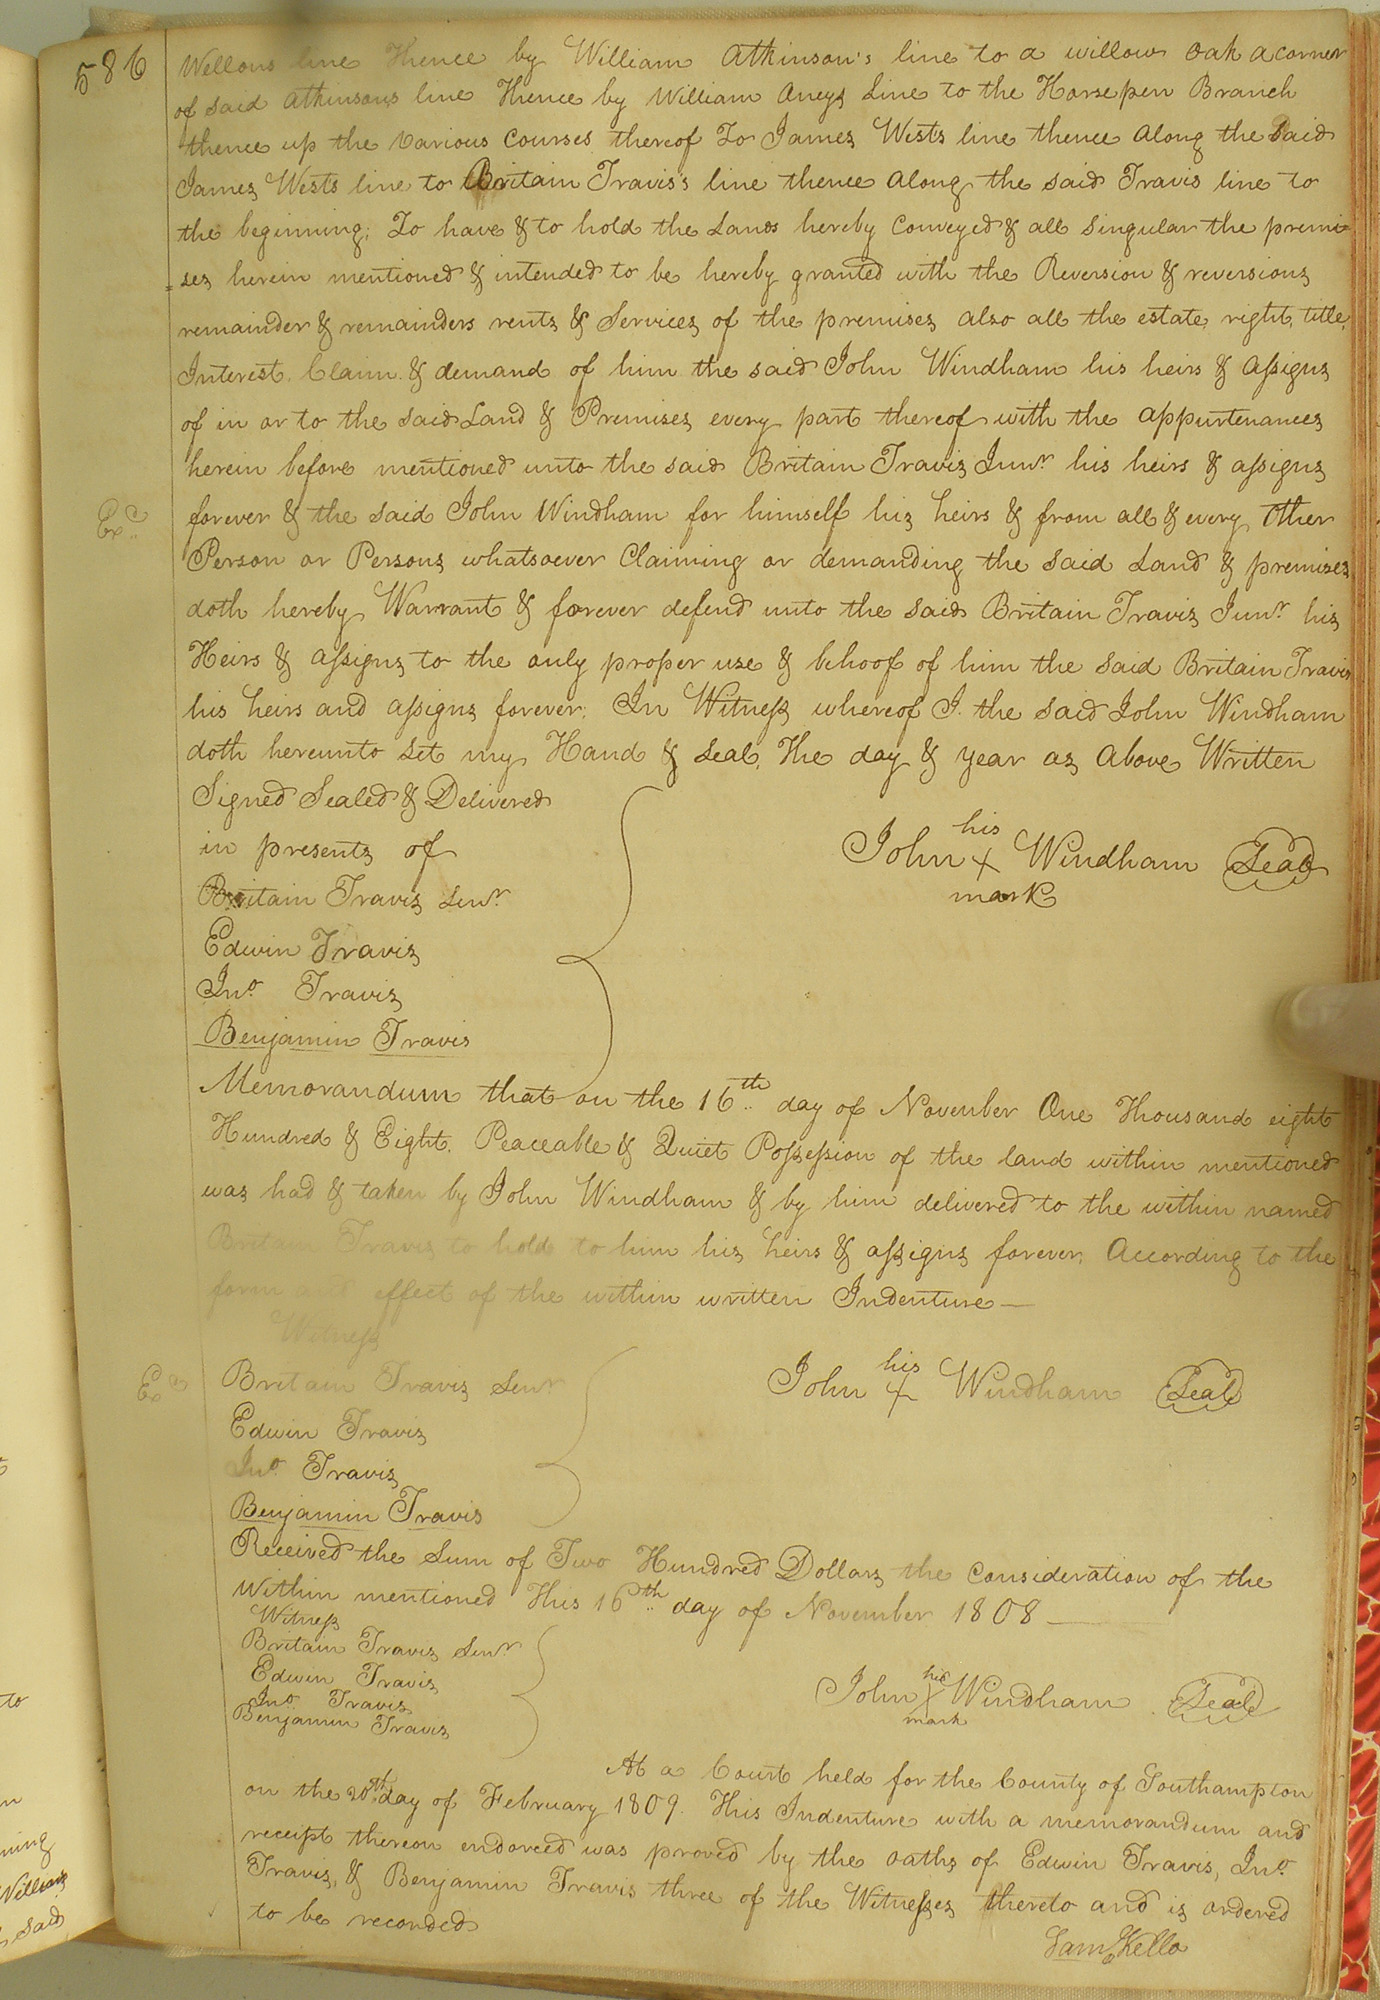 586
Wellons line Thence by William Atkinson's line to a willow Oak a corner
of said Atkinsons line Thence by William Aneys Line to the Horsepen Branch
thence up the various Courses thereof To James Wests line thence along the said
James Wests line to Britain Travis's line thence along the said Travis line to
the beginning; To have & to hold the Lands hereby Conveyed & all Singular the premi=
=ses herein mentioned & intended to be hereby granted with the Reversion & reversions
remainder & remainders rents & Services of the premises also all the estate, right, title,
Interest, Claim & demand of him the said John Windham his heirs & assigns
of in or to the said Land & Premises every part thereof with the appurtenances
herein before mentioned unto the said Britain Travis Junr. his heirs & assigns
Exd.
forever & the said John Windham for himself his heirs & from all & every Other
Person or Persons whatsoever Claiming or demanding the said Land & premises
doth hereby Warrant & forever defend unto the said Britain Travis Junr. his
Heirs & assigns to the only proper use & behoof of him the said Britain Travis
his heirs and assigns forever; In Witness whereof I. the said John Windham
doth hereunto Set my Hand & Seal, The day & year as Above Written
Signed Sealed & Delivered
in presents of
John his X mark Windham Seal
Britain Travis Senr.
Edwin Travis
Jno. Travis
Benjamin Travis
Memorandum that on the 16th day of November One Thousand eight
Hundred & Eight. Peaceable & Quiet Possession of the land within mentioned
was had & taken by John Windham & by him delivered to the within named
Britain Travis to hold to him his heirs & assigns forever; According to the
form and effect of the within written Indenture—
Witness
John his X Windham Seal
Britain Travis Senr
Edwin Travis
Jno. Travis
Benjamin Travis
Received the Sum of Two Hundred Dollars the Consideration of the
Within mentioned This 16th day of November 1808—
Witness
Britain Travis Senr
Edwin Travis
Jno. Travis
Benjamin Travis
John his X mark Windham Seal
At a Court held for the County of Southampton
on the 20th day of February 1809. This Indenture with a memorandum and
receipt thereon endorced was proved by the oaths of Edwin Travis, Jno.
Travis, & Benjamin Travis three of the Witnesses thereto and is ordered
to be recorded
Saml Kello